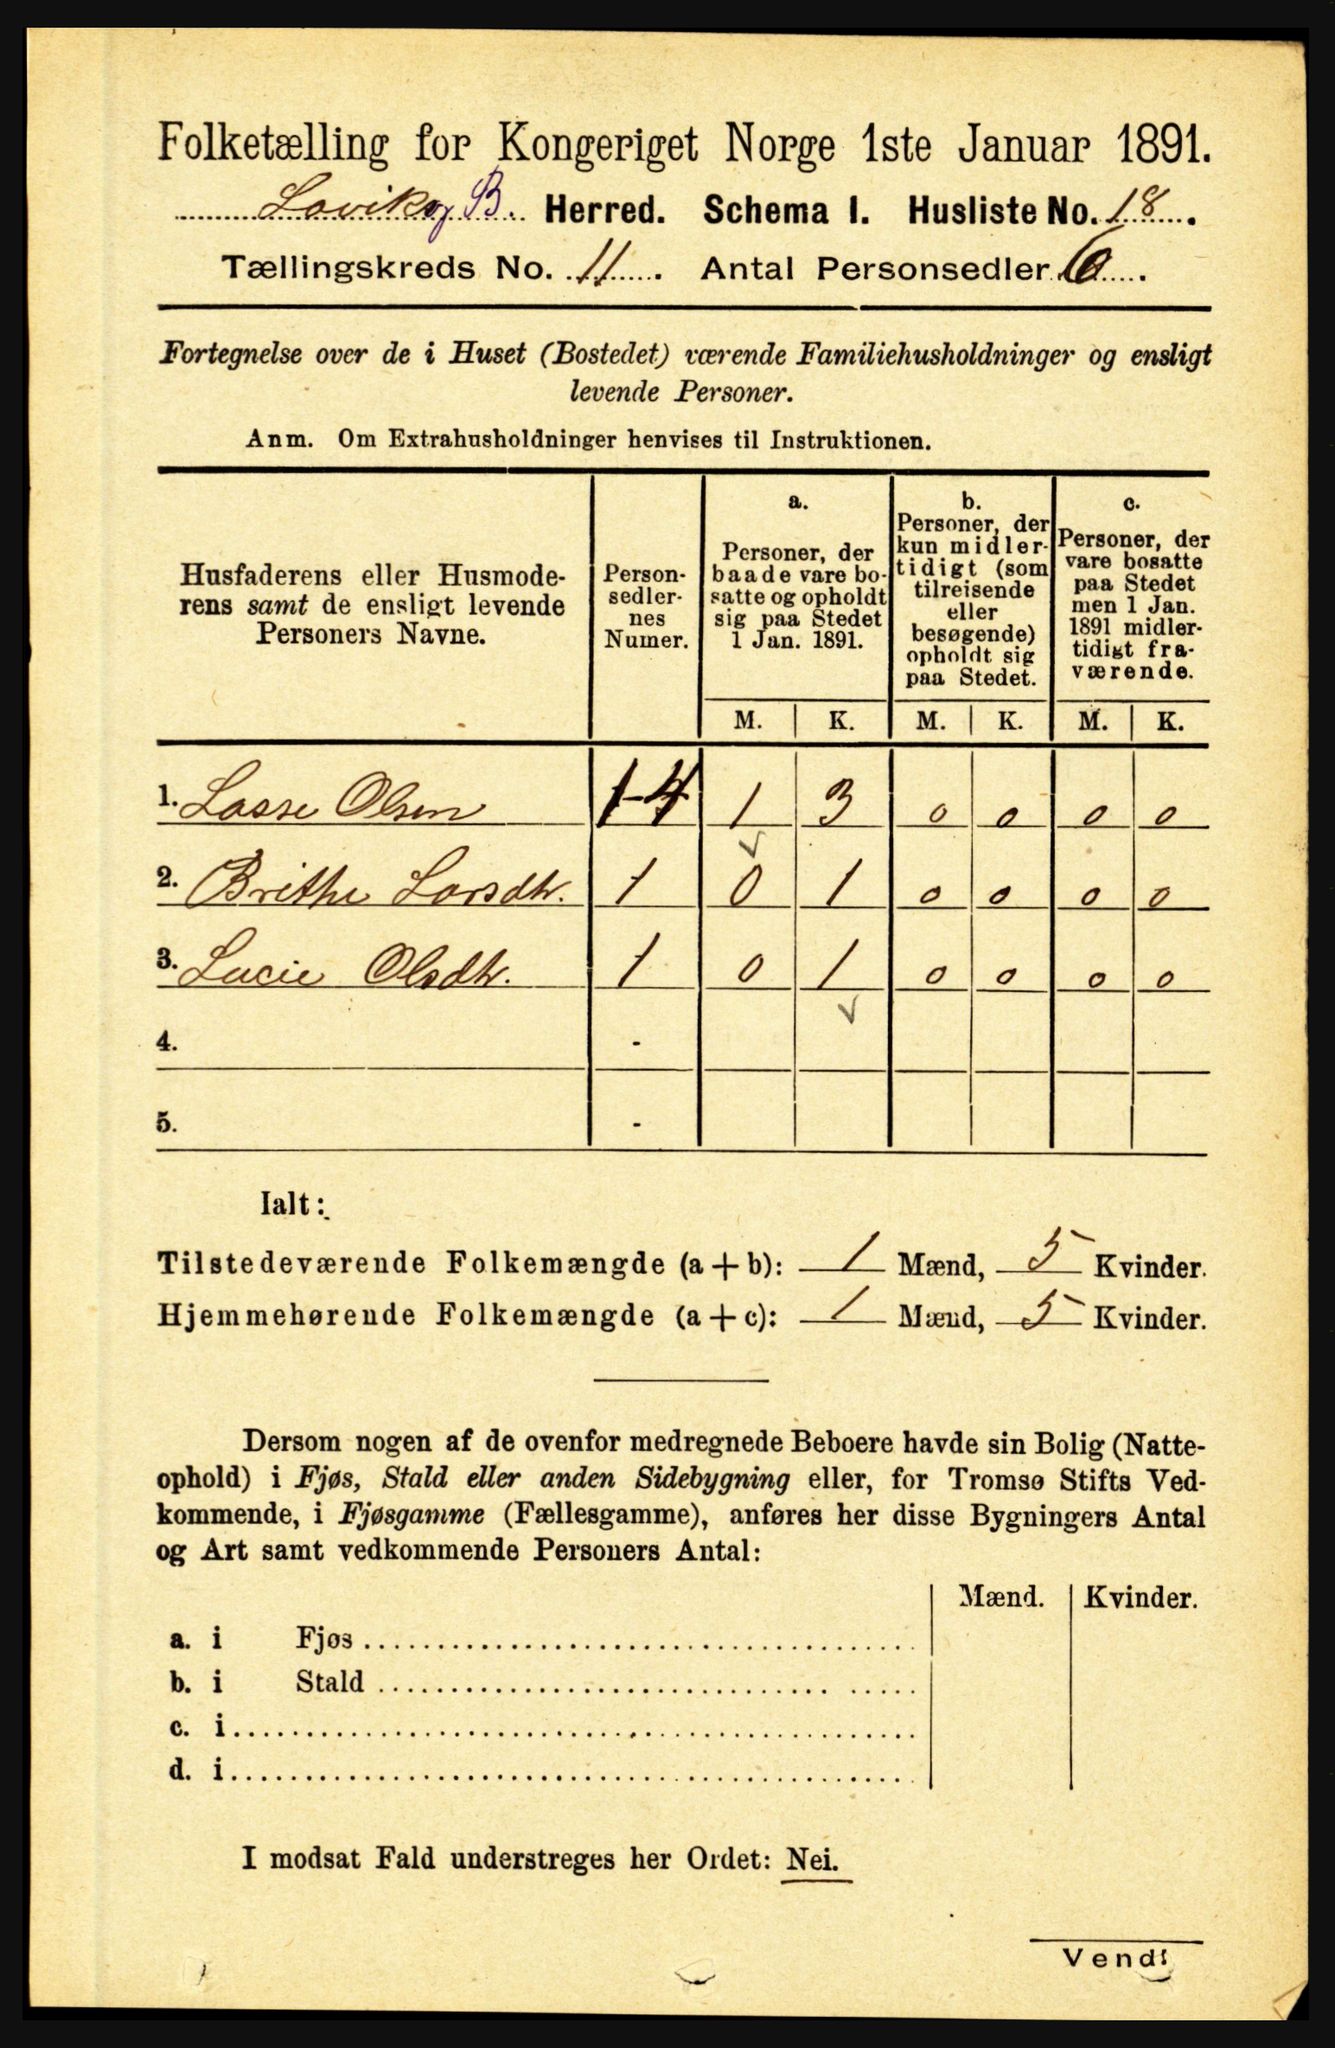 Folketælling for Kongeriget Norge 1ste Januar 1891.
Lavik og B. Herred. Schema I. Husliste No. 18.
Tællingskreds No. 11. Antal Personsedler 6.
Fortegnelse over de i Huset (Bostedet) værende Familiehusholdninger og ensligt
levende Personer.
Anm. Om Extrahusholdninger henvises til Instruktionen.
Husfaderens eller Husmode-
rens samt de ensligt levende
Personers Navne.
Person-
sedler-
nes
Numer.
a.
Personer, der
baade vare bo-
satte og opholdt
sig paa Stedet
1 Jan. 1891.
b.
Personer, der
kun midler-
tidigt (som
tilreisende
eller
besøgende)
opholdt sig
paa Stedet.
c.
Personer, der
vare bosatte
paa Stedet
men 1 Jan.
1891 midler-
tidigt fra-
værende.
M. K. M. K. M. K.
1. Lasse Olsen 1-4 1 3 0 0 0 0
2. Brithe Larsdtr. 1 0 1 0 0 0 0
3. Lucie Olsdtr. 1 0 1 0 0 0 0
4. -
5. -
Ialt:
Tilstedeværende Folkemængde (a+b): 1 Mænd, 5 Kvinder.
Hjemmehørende Folkemængde (a+c): 1 Mænd, 5 Kvinder.
Dersom nogen af de ovenfor medregnede Beboere havde sin Bolig (Natte-
ophold) i Fjøs, Stald eller anden Sidebygning eller, for Tromsø Stifts Ved-
kommende, i Fjøsgamme (Fællesgamme), anføres her disse Bygningers Antal
og Art samt vedkommende Personers Antal:
Mænd. Kvinder.
a. i Fjøs
b. i Stald
c. i
d. i
I modsat Fald understreges her Ordet: Nei.
Vend!